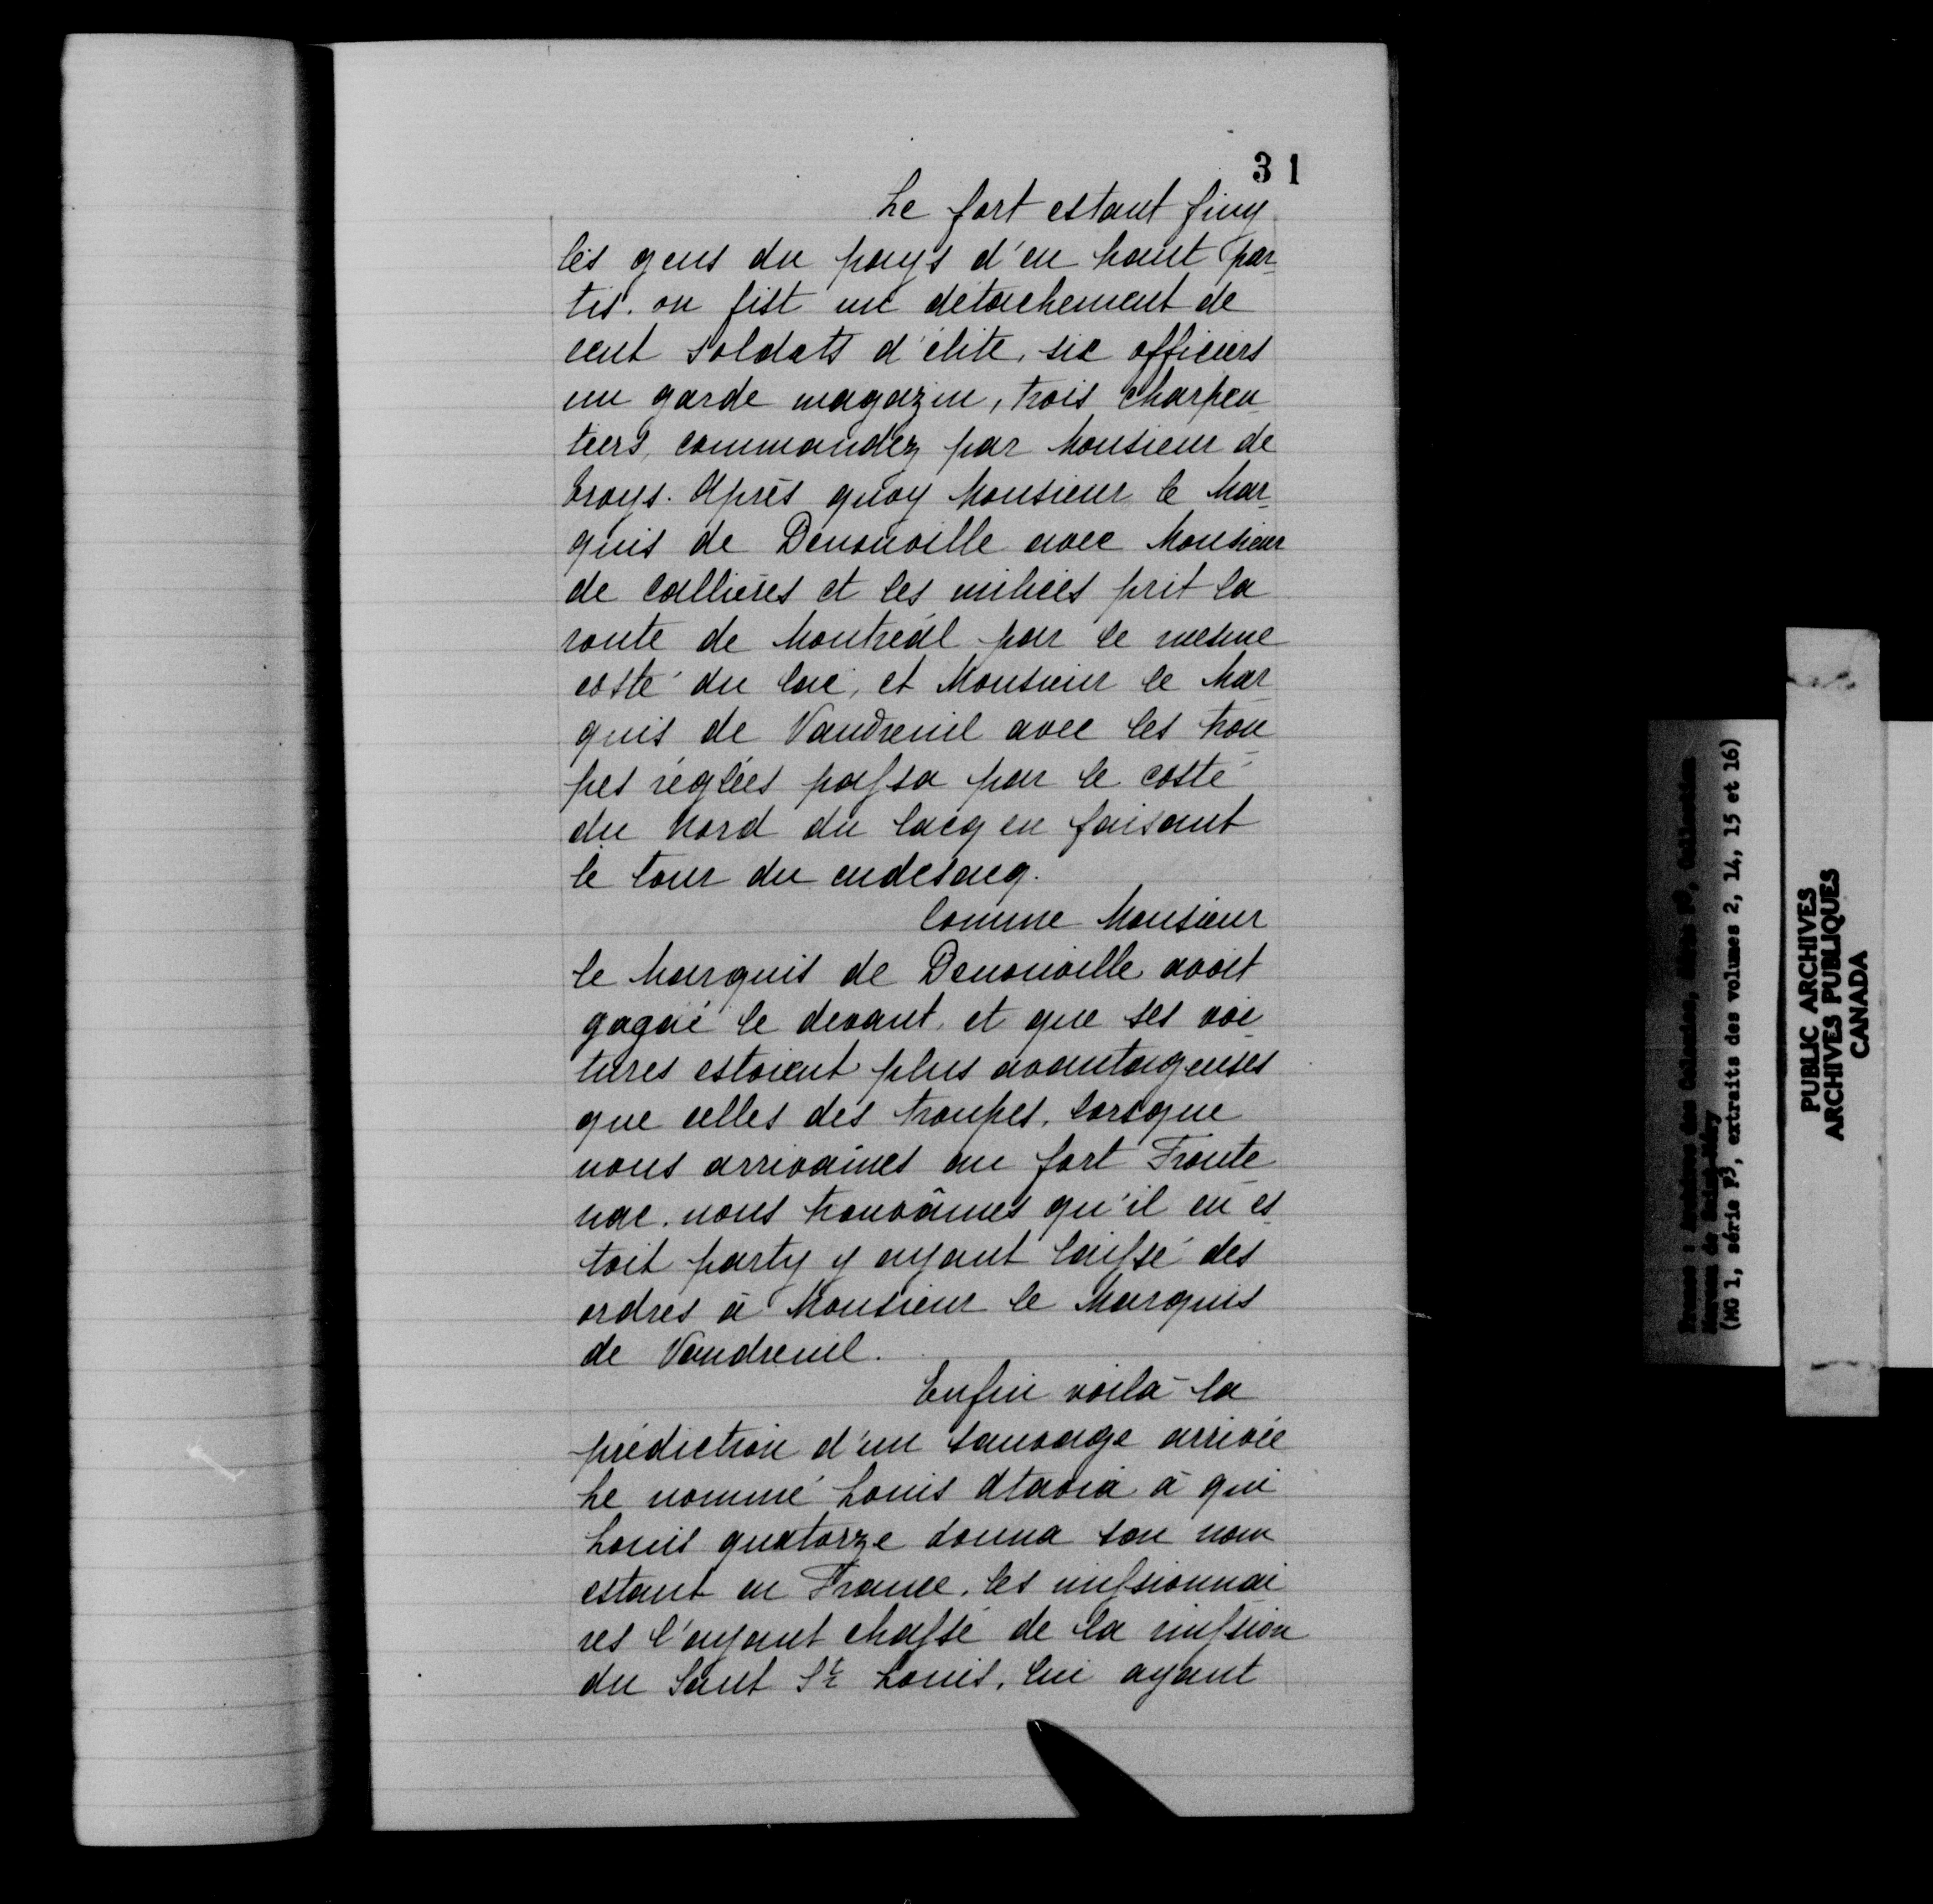 31
Le fort estant finy
les gens du pays d'en haut par-
tis. on fist un détachement de
cent soldats d'élite, six officiers
un garde magazin, trois charpen-
tiers, commandez par Monsieur de
Troys. Après quoy Monsieur le Mar-
quis de Denonville avec Monsieur
de Callières et les milices prit la
route de Montréal par le mesme
costé du lac, et Monsieur le Mar-
quis de Vaudreuil avec les trou-
pes réglées passa par le costé
du nord du lacq en faisant
le tour du cudesacq.
Comme Monsieur
le Marquis de Denonville avoit
gagné le devant, et que ses voi-
tures estoient plus avantageuses
que celles des troupes, lorsque
nous arrivâmes au fort Fronte-
nac, nous trouvâmes qu'il en es-
toit party y ayant laissé des
ordres à Monsieur le Marquis
de Vaudreuil.
Enfin voilà la
prédiction d'un sauvage arrivée
Le nommé Louis Atavia à qui
Louis quatorze donna son nom
estant en France, les missionnai-
res l'ayant chassé de la mission
du Saut St Louis, lui ayant
France : Archives des Colonies, série F3, Collection
Moreau de Saint-Méry
(MG 1, série F3, extraits des volumes 2, 14, 15 et 16)
PUBLIC ARCHIVES
ARCHIVES PUBLIQUES
CANADA